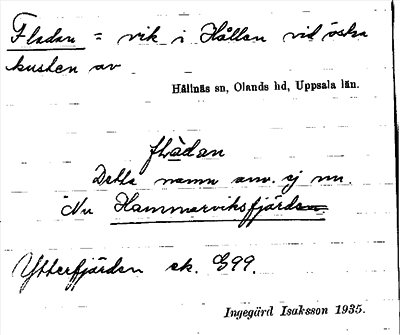 Fladan = vik i Hållen vid östra
kusten av
Hållnäs sn, Olands hd, Uppsala län.
flàdan
Detta namn anv. ej nu.
Nu Hammarviksfjärden.
Ytterfjärden ek. G99.
Ingegärd Isaksson 1935.